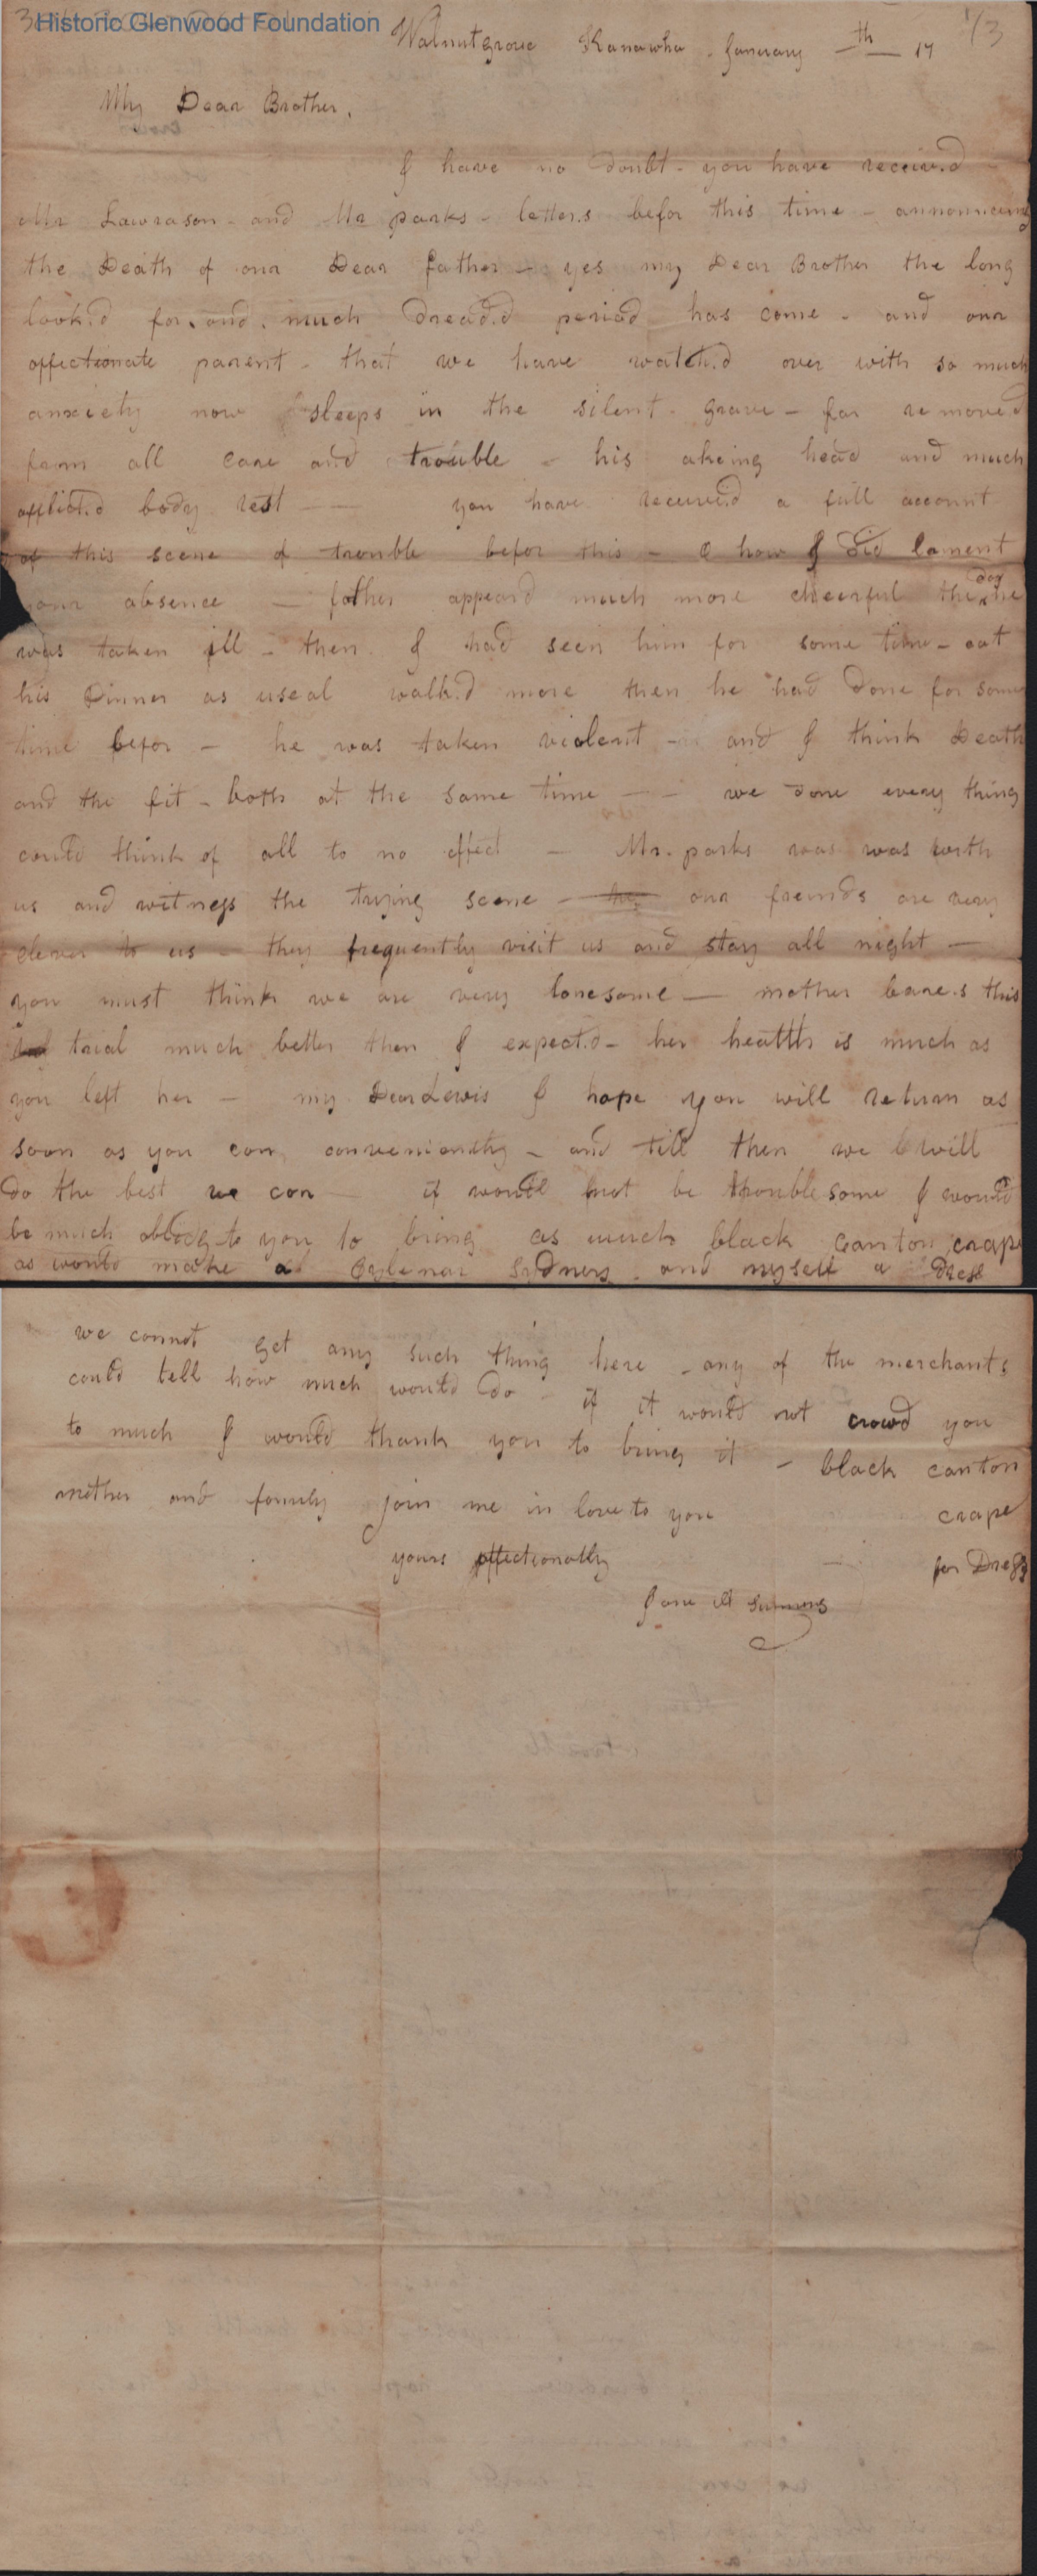 Historic Glenwood Foundation
1/3
Walnutgrove Kanawha - January th 17
My Dear Brother,
I have no doubt - you have receiv.d
Mr Lawrason - and Mr parks - letter.s befor this time - announceing
the Death of our Dear father - yes my Dear Brother the long
look.d for and much Dread.d period has come - and our
affectionate parent - that we have watch.d over with so much
anxiety now sleeps in the silent - grave - far removed
from all care and trouble - his akeing head and much
afflict.d body rest — you have receive.d a full account
of this scene of trouble befor this - O how I did lament
your absence — father appear.d much more cheerful the day he
was taken ill - then I had seen him for some time - eat
his Dinner as useal walk.d more then he had done for some
time befor — he was taken violent - and I think Death
and the fit - both at the same time — we done every thing
could think of all to no effect — Mr. parks was was with
us and witness the trying scene - he our freinds are very
clever to us - they frequently visit us and stay all night —
you must think we are very lonesome — mother beare.s this
trial much better then I expect.d - her health is much as
you left her — my Dear Lewis I hope you will return as
soon as you can conveniently - and till then we will
do the best we can — if would not be troublesome I would
be much obledg to you to bring as much black canton crape
as would make a Sydneys and myself a Dress
we cannot get any such thing here - any of the merchants
could tell how much would do - if it would not crowd you
to much I would thank you to bring it - black canton
crape
for Dress
mother and family join me in love to you
yours affectionatly
Jane M Summers